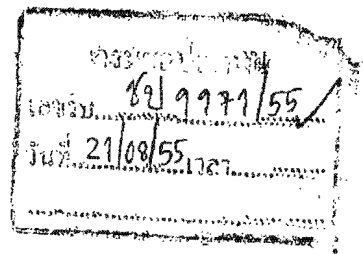 เลขรับ ชป 9971/55
วันที่ 21/08/55 เวลา